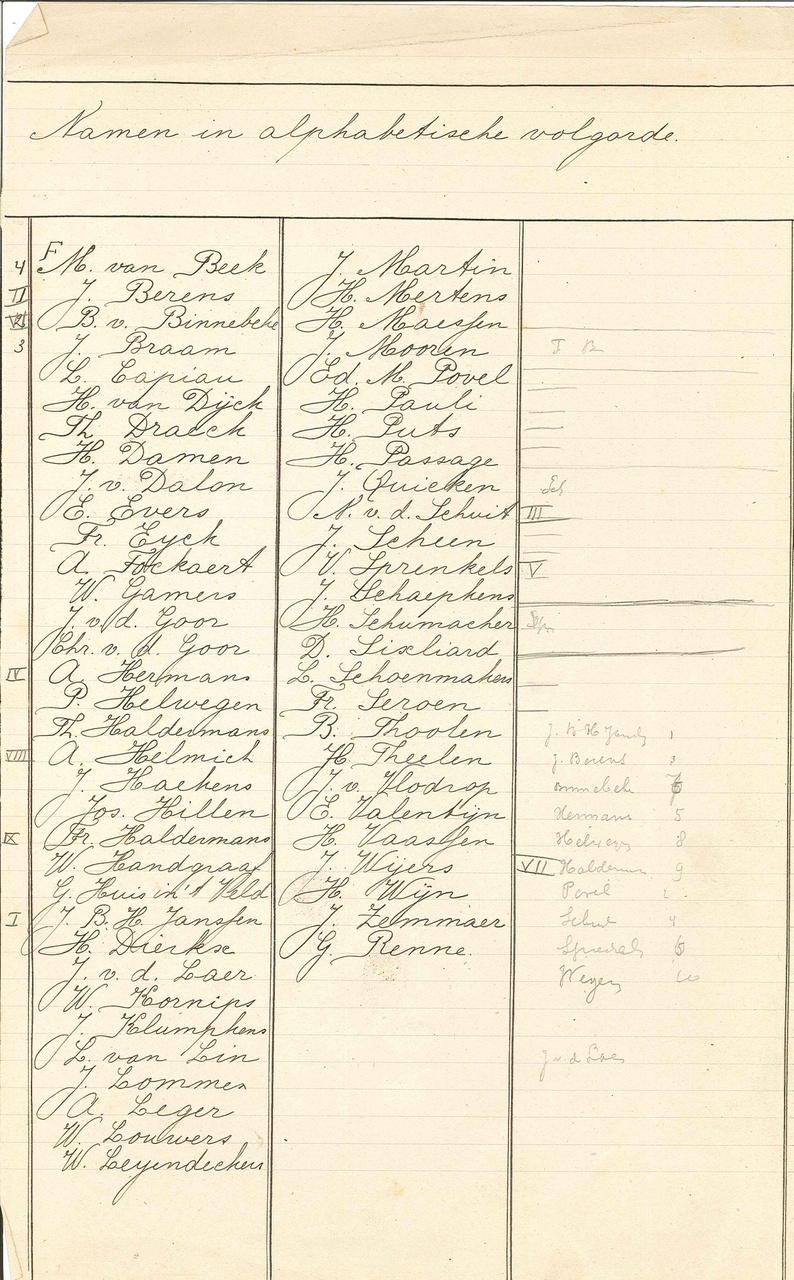 Namen in alphabetische volgorde.
4 F M. van Beek
II J. Berens
VI B. v. Binnebeke
3 J. Braam
L. Capiau
H. van Dÿck
Th. Draeck
H. Damen
J. v. Dalon
E. Evers
Fr. Eyck
A. Fockaert
W. Gamers
J. v. d. Goor
Chr. v. d. Goor
IV A. Hermans
P. Helwegen
Th. Haldermans
VIII A. Helmich
J. Haekens
Jos. Hillen
IX Fr. Haldermans
W. Handgraaf
G. Huis in 't Veld
I J. B. H. Janssen
H. Dierkx
J. v. d. Laer
W. Kornips
J. Klumpkens
L. van Lin
J. Lommen
A. Leger
W. Louwers
W. Leyendeckers
J. Martin
H. Mertens
H. Maessen
J. Mooren
Ed. M. Povel
H. Pauli
H. Puts
H. Passage
J. Quicken
N. v. d. Schuit
J. Scheen
V. Sprenkels
J. Schaepkens
H. Schumacher
D. Sixliard
L. Schoenmakers
Fr. Seroen
B. Thoolen
H. Theelen
J. v. Vlodrop
E. Valentÿn
H. Vaassen
J. Wÿers
H. Wÿn
J. Zemmaer
G. Renne.
I B
Sch
III
V
J. B H Jansen 1
J. Berens 3
Hermans 5
Helwegen 8
VII Halderman 9
Povel 2
4
6
Weyers 10
J v. d Laer